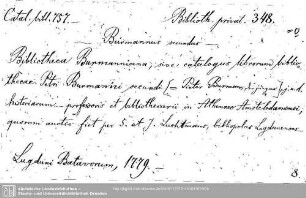 Catal. bibl. 757. — Biblioth. privat. 348.
Burmannus secundus —
Bibliotheca Burmanniana, sive catalogus librorum biblio-
thecae Petri Burmanni, secundi (= Pieter Burmann,
historiarum professoris et bibliothecarii in Athenaeo Amstelodamensi,
quorum auctio fiet per S. et J. Luchtmans, bibliopolas Lugdunenses.
Lugduni Batavorum, 1779. —
8.
Sächsische Landesbibliothek -
Staats- und Universitätsbibliothek Dresden